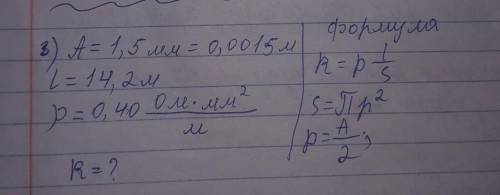 3) A = 1,5 мм = 0,0015 м
l = 14,2 м
р = 0,40 Ом·мм²/м
R = ?
формула
R = р l/S
S = Пр²
р = A/2;